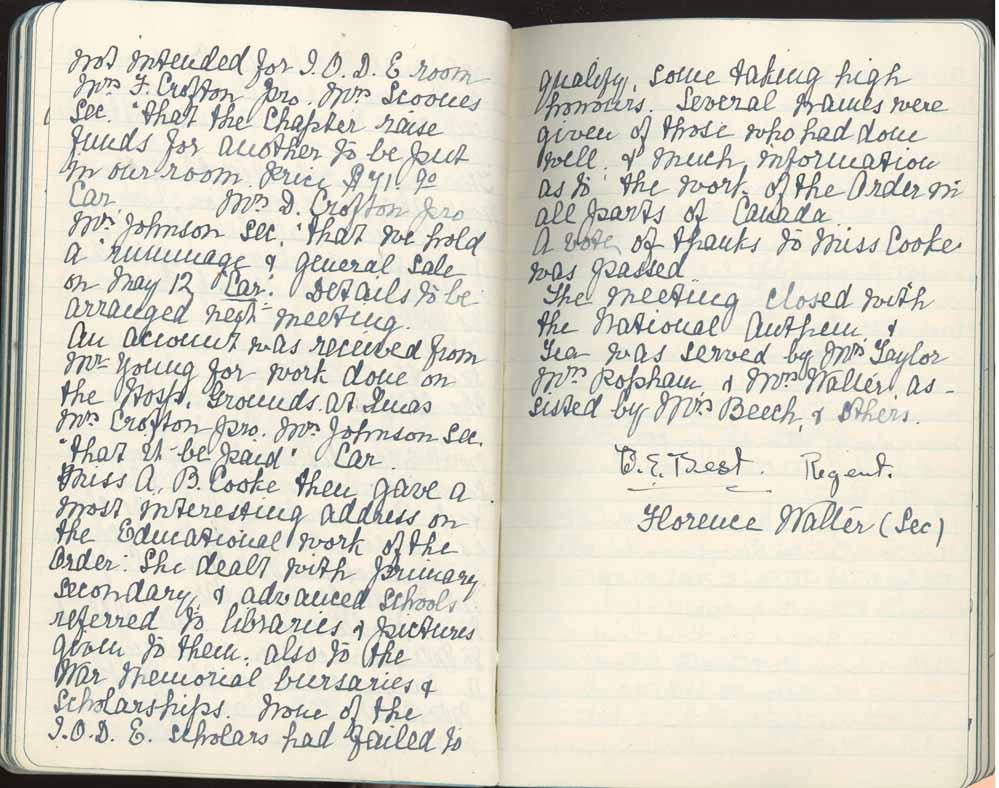 not intended for I.O.D.E room
Mrs F. Crofton pro. Mrs Scoones
Sec. "that the Chapter raise
funds for another to be put
in our room. Price $71.90
Car Mrs D. Crofton pro
Mrs Johnson Sec. "that we hold
a rummage & general Sale
on May 12 "Car". Details to be
arranged next meeting.
An account was received from
Mr Young for work done on
the Hosp. Grounds at
Mrs Crofton pro. Mrs Johnson Sec.
"that it be paid" Car.
Miss A. B. Cooke then gave a
most interesting address on
the Educational work of the
Order. She dealt with primary
secondary & advanced schools
referred to libraries & pictures
given to them, also to the
War Memorial bursaries &
Scholarships. None of the
I.O.D.E. scholars had failed to
qualify, some taking high
honours. Several names were
given of those who had done
well. & much information
as to the work of the Order in
all parts of Canada.
A vote of thanks to Miss Cooke
was passed
The meeting closed with
the National Anthem &
Tea was served by Mrs Taylor
Mrs Popham & Mrs Walter as-
sisted by Mrs Beech, & others.
V.E. Best. Regent.
Florence Walter (Sec)